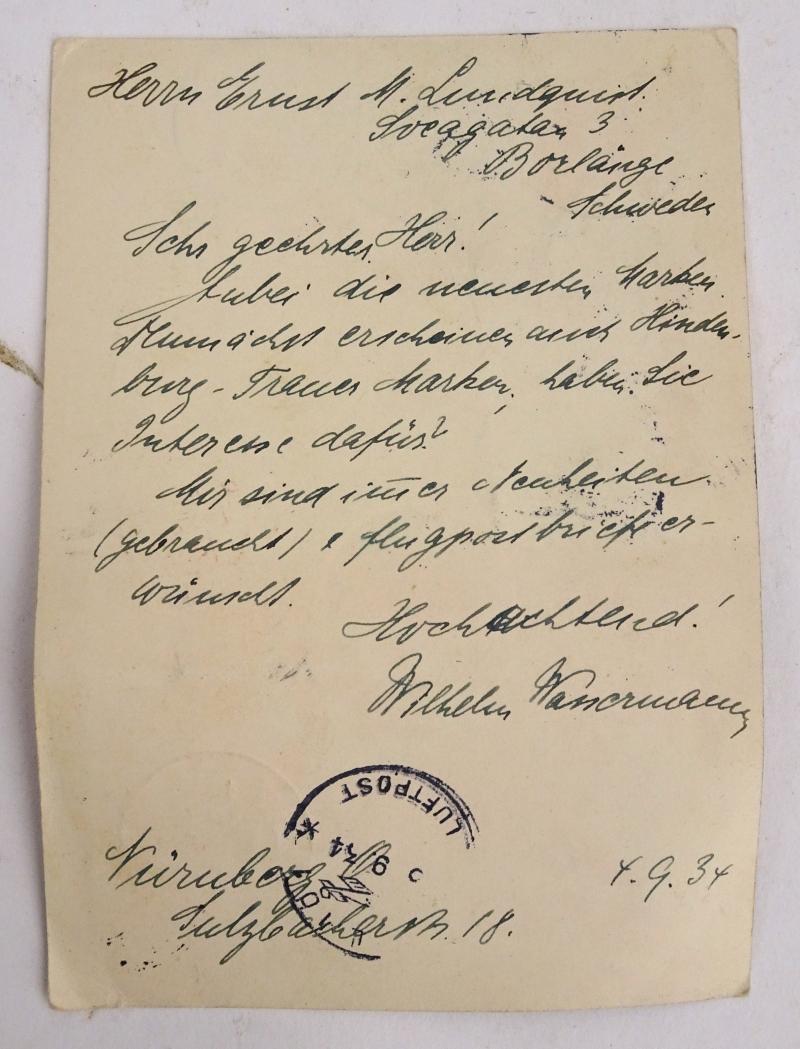 Herrn Ernst M. Lundquist.
3
Borlänge
Schweden
Sehr geehrter Herr!
Anbei die neuesten Marken.
Demnächst erscheinen auch Hinden-
burg-Trauer Marken, haben Sie
Interesse dafür?
Mir sind im̅er Neuheiten
(gebraucht) & flugpostbriefe er-
wünscht.
Hochachtend!
Wilhelm Wassermann
LUFTPOST
9 34
Nürnberg
4.9.34
Sulzbacherstr. 18.